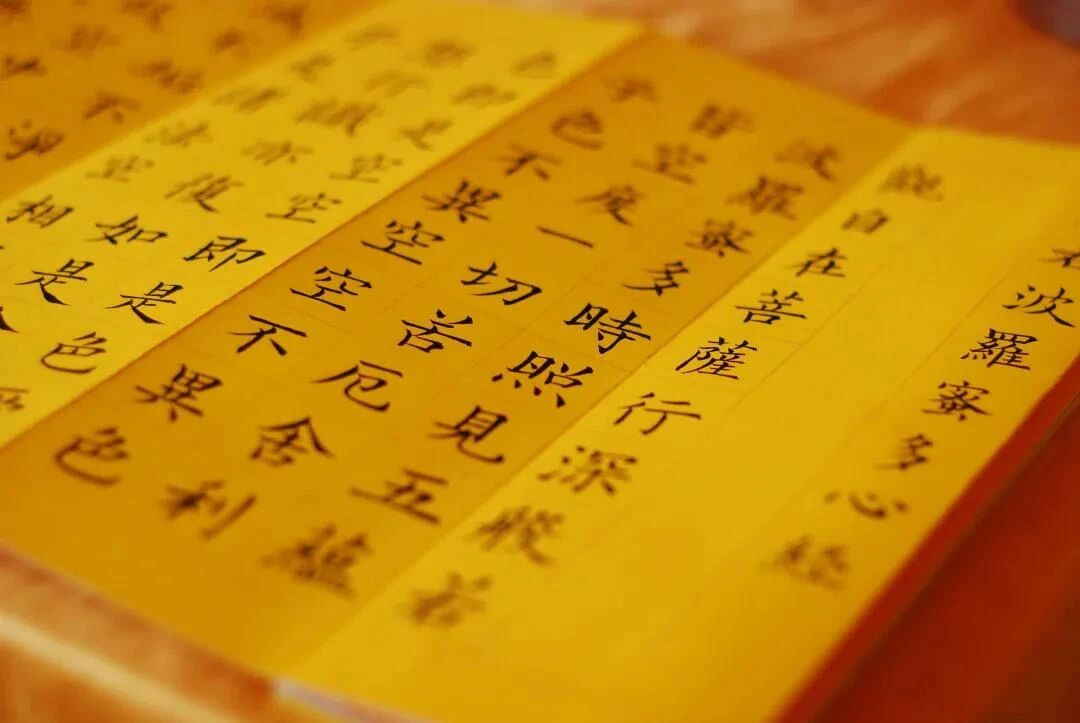 若波羅蜜多心經
觀自在菩薩行深般若
波羅蜜多時照見五蘊
皆空度一切苦厄舍利
子色不異空空不異色
色即是空空即是色受
想行識亦復如是
子是諸法空相
不垢不淨